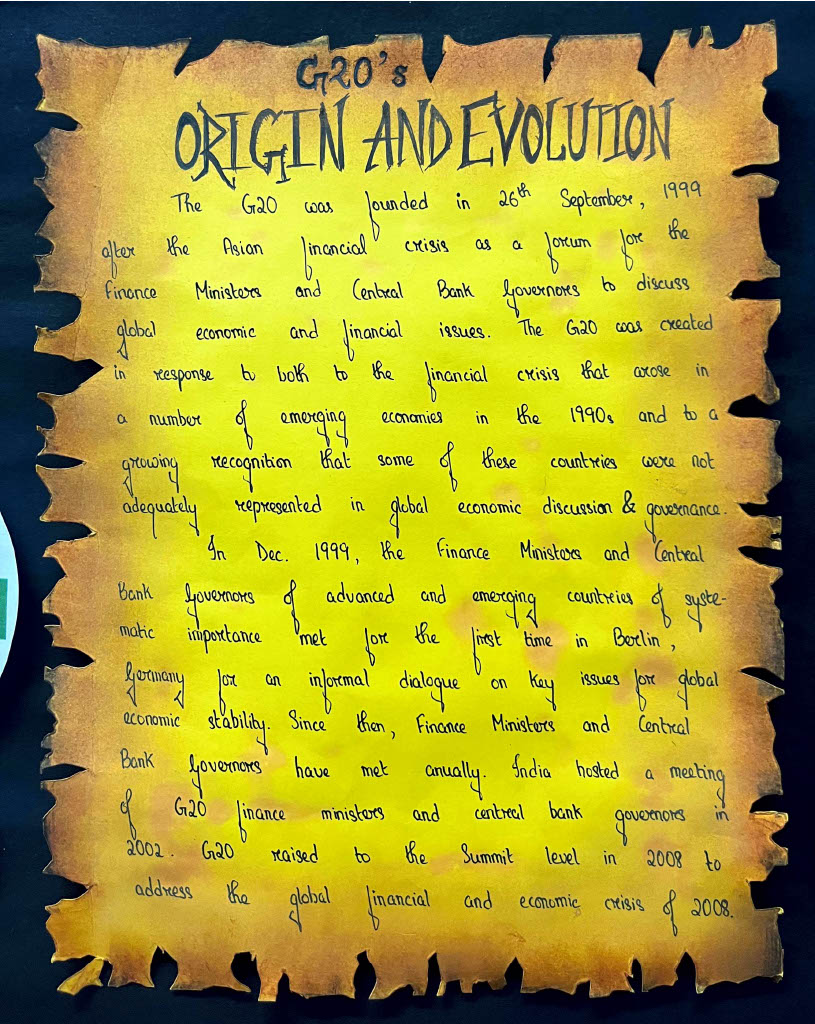 G20's
ORIGIN AND EVOLUTION
The G20 was founded in 26th September, 1999
after the Asian financial crisis as a forum for the
Finance Ministers and Central Bank Governors to discuss
global economic and financial issues. The G20 was created
in response to both to the financial crisis that arose in
a number of emerging economies in the 1990s and to a
growing recognition that some of these countries were not
adequately represented in global economic discussion & governance.
In Dec. 1999, the Finance Ministers and Central
Bank Governors of advanced and emerging countries of syste-
matic importance met for the first time in Berlin,
Germany for an informal dialogue on key issues for global
economic stability. Since then, Finance Ministers and Central
Bank Governors have met anually. India hosted a meeting
of G20 finance ministers and central bank governors in
2002. G20 raised to the Summit level in 2008 to
address the global financial and economic crisis of 2008.